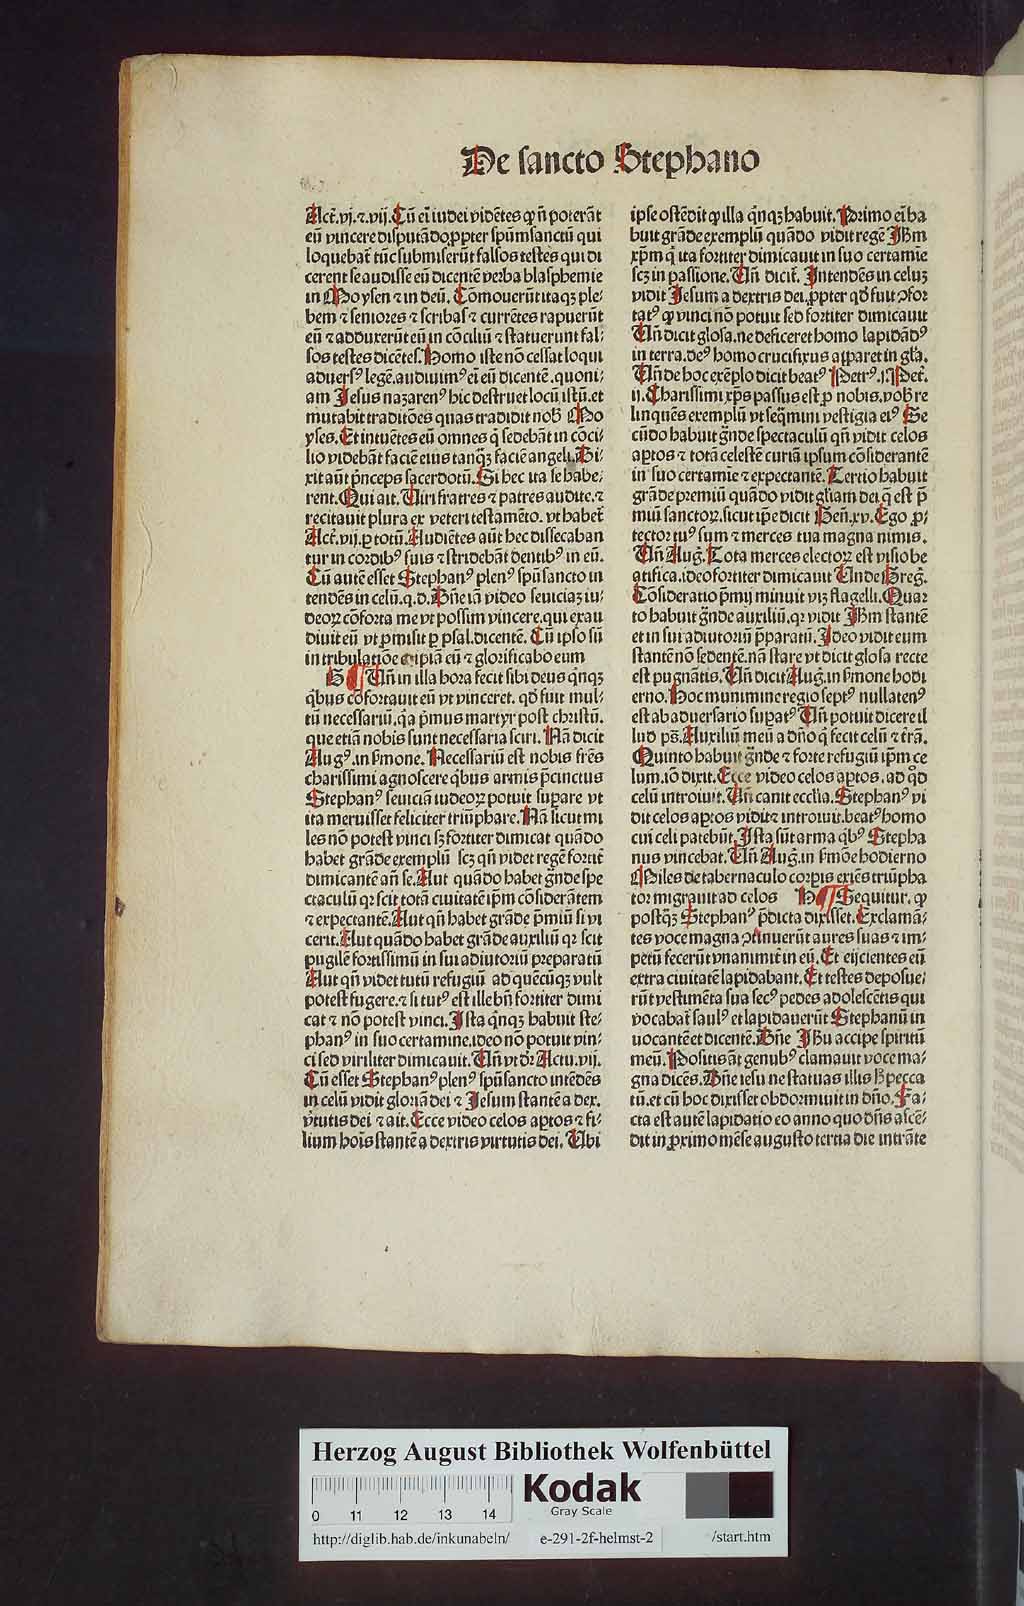 De sancto Stephano
Act̄.vj.⁊.vij. Cū eī iudei vidētes ꝙ nō poterāt
eū vincere disputādo,ꝓpter spūmsanctū qui
loquebat̄ tūc submiserūt falsos testes qui di
cerent se audisse eū dicentē verba blasphemie
in Moysen ⁊ in deū. Cōmouerūt itaqꝫ ple⸗
bem ⁊ seniores ⁊ scribas ⁊ currētes rapuerūt
eū ⁊ adduxerūt eū in cōciliū ⁊ statuerunt fal⸗
sos testes dicētes. Homo iste nō cessat loqui
aduersꝰ legē.audiuimꝰ eī eū dicentē.quoni⸗
am Jesus nazarenꝰ hic destruet locū istū.et
mutabit traditōes quas tradidit nob̄ Mo
yses. Et intuētes eū omnes q̄ sedebāt in cōci⸗
lio videbāt faciē eius tanqꝫ faciē angeli. Di⸗
xit aūt p̄nceps sacerdotū. Si hec ita se habe⸗
rent. Qui ait. Uiri fratres ⁊ patres audite.⁊
recitauit plura ex veteri testamēto.vt habet̄
Act̄.vij.ꝑ totū. Audiētes aūt hec dissecaban
tur in cordibꝰ suis ⁊ stridebāt dentibꝰ in eū.
Cū autē esset Stephanꝰ plenꝰ spūsancto in
tendēs in celū.q.d. Dn̄e iā video seuiciaꝫ iu⸗
deoꝝ cōforta me vt possim vincere.qui exau
diuit eū vt ꝓmisit ꝑ psal.dicentē. Cū ipso sū
in tribulatiōe eripiā eū ⁊ glorificabo eum
G ¶ Un̄ in illa hora fecit sibi deus q̄nqꝫ
q̄bus cōfortauit eū vt vinceret. qd̄ fuit mul⸗
tū necessariū.q̄a p̄mus martyr post christū.
que etiā nobis sunt necessaria sciri. Nā dicit
Augꝰ.in sermone. Necessariū est nobis frēs
charissimi agnoscere q̄bus armis p̄cinctus
Stephanꝰ seuiciā iudeoꝝ potuit suꝑare vt
ita meruisset feliciter triūphare. Nā sicut mi
les nō potest vinci sꝫ fortiter dimicat quādo
habet grāde exemplū scꝫ qn̄ videt regē fortit̄
dimicantē an̄ se. Aut quādo habet gn̄de spe
ctaculū qꝛ scit totā ciuitatē ip̄m cōsiderātem
⁊ expectantē. Aut qn̄ habet grāde p̄miū si vi
cerit. Aut quādo habet grāde auxiliū qꝛ scit
pugilē fortissimū in sui adiutoriū preparatū
Aut qn̄ videt tutū refugiū ad quēcūqꝫ vult
potest fugere.⁊ si tutꝰ est ille bn̄ fortiter dimi
cat ⁊ nō potest vinci. Ista q̄nqꝫ habuit ste⸗
phanꝰ in suo certamine.ideo nō potuit vin⸗
ci sed viriliter dimicauit. Un̄ vt dr̄ Actu.vij.
Cū esset Stephanꝰ plenꝰ spūsancto intēdēs
in celū vidit gloriā dei ⁊ Jesum stantē a dex.
v̄tutis dei ⁊ ait. Ecce video celos aꝑtos ⁊ fi⸗
lium hoīs stantē a dextris virtutis dei. Ubi
ipse ostēdit ꝙ illa q̄nqꝫ habuit. Primo eī ha
buit grāde exemplū quādo vidit regē Jhm
xp̄m q̄ ita fortiter dimicauit in suo certamīe
scꝫ in passione. Un̄ dicit̄. Intendēs in celuꝫ
vidit Jesum a dextris dei.ꝓpter qd̄ fuit ꝯfor
tatꝰ ꝙ vinci nō potuit sed fortiter dimicauit
Un̄ dicit glosa.ne deficeret homo lapidādꝰ
in terra.deꝰ homo crucifixus apparet in gl̄a.
Un̄ de hoc exēplo dicit beatꝰ Petrꝰ.j. Pet̄.
ij. Charissimi xp̄s passus est ꝓ nobis.vob̄ re
linquēs exemplū vt seq̄mini vestigia eiꝰ Se
cūdo habuit gn̄de spectaculū qn̄ vidit celos
aꝑtos ⁊ totā celestē curiā ipsum cōsiderantē
in suo certamīe ⁊ expectantē. Tertio habuit
grāde premiū quādo vidit gl̄iam dei q̄ est p̄
miū sanctoꝝ.sicut ip̄e dicit Gen̄.xv. Ego ꝓ⸗
tector tuꝰ sum ⁊ merces tua magna nimis.
Un̄ Auḡ. Tota merces electoꝝ est visio be
atifica.ideo fortiter dimicauit Un̄ de Greḡ.
Cōsideratio p̄mij minuit vim flagelli. Quar
to habuit gn̄de auxiliū.qꝛ vidit Jhm stantē
et in sui adiutoriū p̄paratū. Ideo vidit eum
stantē nō sedentē.nā stare vt dicit glosa recte
est pugnātis. Un̄ dicit Auḡ.in sermone hodi
erno. Hoc munimine regio septꝰ nullatenꝰ
est ab aduersario suꝑatꝰ Un̄ potuit dicere il
lud ps̄. Auxiliū meū a dn̄o q̄ fecit celū ⁊ t̄rā.
Quinto habuit gn̄de ⁊ forte refugiū ip̄m ce
lum.iō dixit. Ecce video celos aꝑtos.ad qd̄
celū introiuit. Un̄ canit eccl̄ia. Stephanꝰ vi
dit celos aꝑtos vidit ⁊ introiuit.beatꝰ homo
cui celi patebūt. Ista sūt arma q̄bꝰ Stepha
nus vincebat. Un̄ Auḡ.in sermōe hodierno
Miles de tabernaculo corꝑis exiēs triūpha
tor migrauit ad celos H ¶ Sequitur. ꝙ
postqꝫ Stephanꝰ p̄dicta dixisset. Exclamā⸗
tes voce magna ꝯtinuerūt aures suas ⁊ im⸗
petū fecerūt vnanimit̄ in eū. Et eijcientes eū
extra ciuitatē lapidabant. Et testes deposue⸗
rūt vestimēta sua secꝰ pedes adolescētis qui
vocabat̄ saulꝰ et lapidauerūt Stephanū in
uocantē et dicentē. Dn̄e Jhu accipe spiritū
meū. Positis āt genubꝰ clamauit voce ma⸗
gna dicēs. Dn̄e iesu ne statuas illis hͦ pecca
tū.et cū hoc dixisset obdormiuit in dn̄o. Fa⸗
cta est autē lapidatio eo anno quo dn̄s ascē⸗
dit in ꝓximo mēse augusto tertia die intrāte
Herzog August Bibliothek Wolfenbüttel
Kodak
Gray Scale
0 11 12 13 14
http://diglib.hab.de/inkunabeln/ e-291-2f-helmst-2 /start.htm